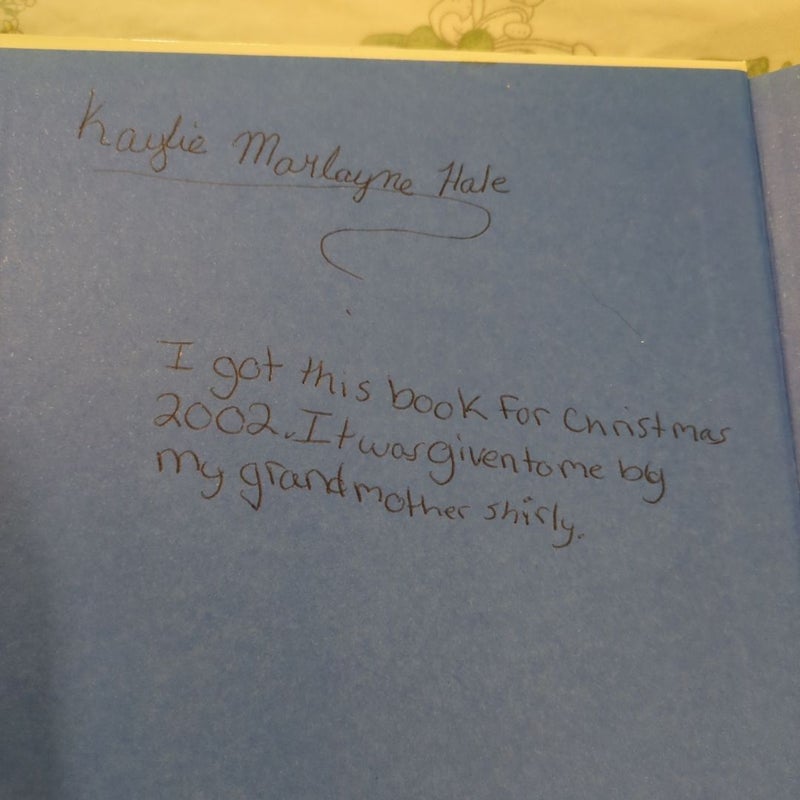 Kaylie Marlayne Hale
I got this book for Christmas
2002. It was given to me by
my grandmother shirly.